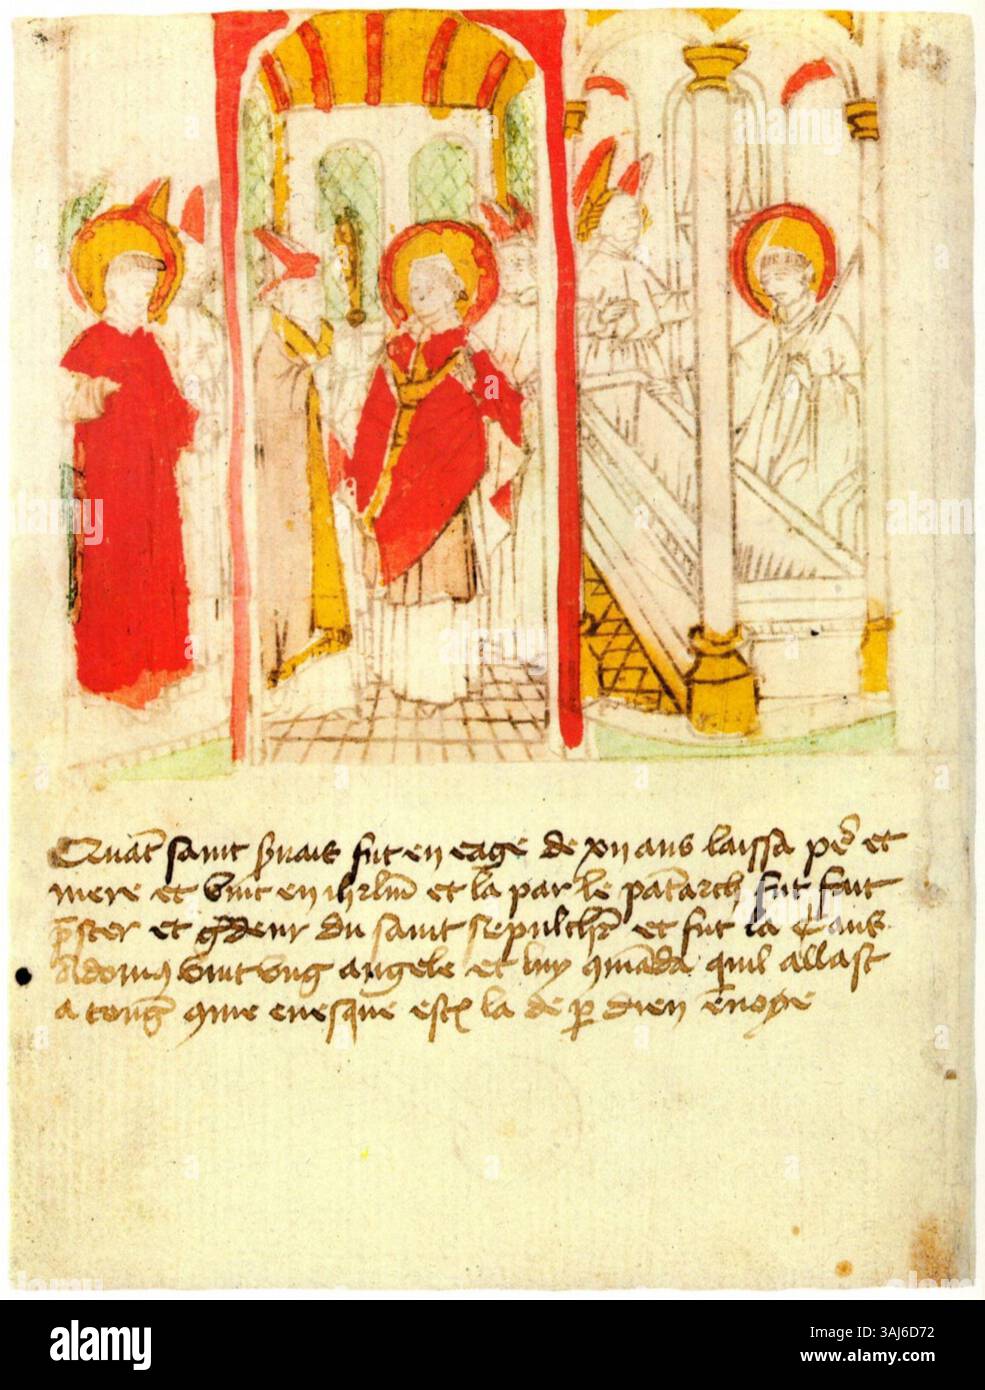 Quāt saint ẜuais fut en eage de xii ans laissa pē et
mere et vint en ihrlm̄ et la par le patarch fut fait
p̄ster et gdeur du saint sepulchr̄ et fut la
vint vng angele et luy qmāda quil allast
a tonḡ que euesque la de p dieu ēnoye
alamy
Image ID: 3AJ6D72
www.alamy.com